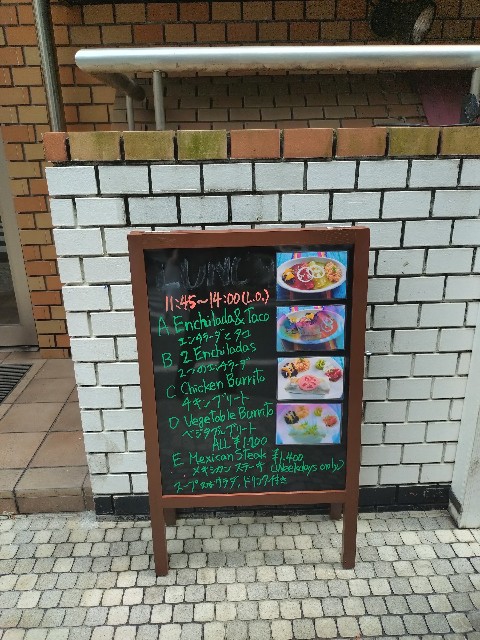 LUNC
11:45~14:00(L.O.)
A Enchilada & Taco
エンチラーダとタコ
B 2 Enchiladas
2つのエンチラーダ
C Chicken Burrito
チキンブリート
D Vegetable Burrito
ベジタブルブリート
ALL ¥1,200
E Mexican Steak ¥1,400
メキシカンステーキ (Weekdays only)
スープ or サラダ、ドリンク付き